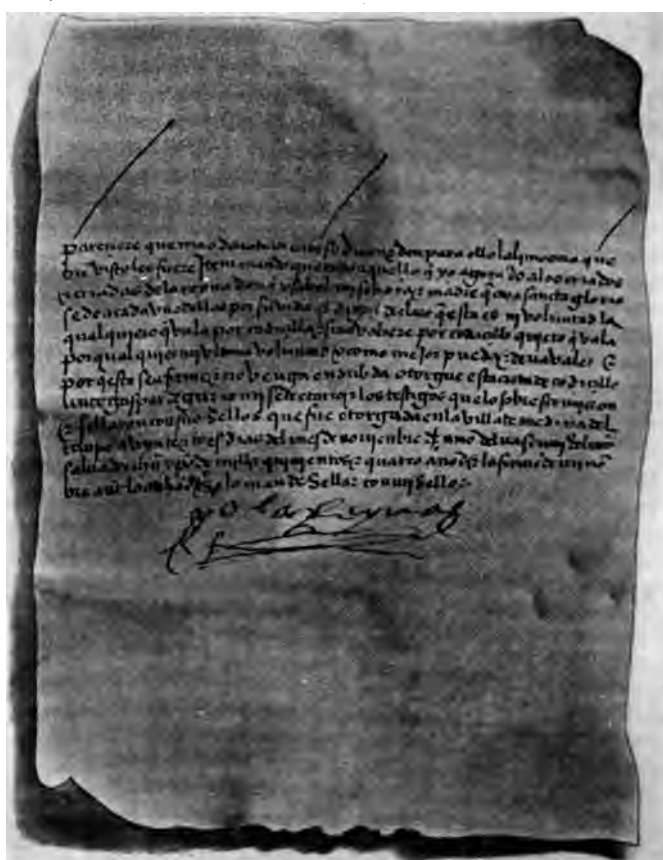 pareçiere que mas devotamente se diran e den para ello la lymosna que
bie visto les fuere Item mando que todo aquello q yo agora do a los criados
e criadas de la reyna dona ysabel mi señora madre q aya sancta gloria
se de a cada uno dellos por su vida e digo e declaro q esta es mi voluntad la
qual quiero q vala por cobdiçillo e si no valiere por cobdiçillo quiero q vala
por qualquier mi ultima voluntad o como mejor pueda e deva valer E
por q esto sea firme e no venga en dubda otorgue esta carta de cobdicillo
ante gaspar de grizio mi secretario e los testigos que lo sobre scrivieron
E sellaron con sus sellos que fue otorgada en la villa de medina del
campo a veynte e tres dias del mes de noviembre del anno del nasçimi del nro
salvador ihu xpo de mill e quinientos e quatro annos e la firme de mi no
bre ante los dichos e lo mande sellar con mi sello
yo la Reyna